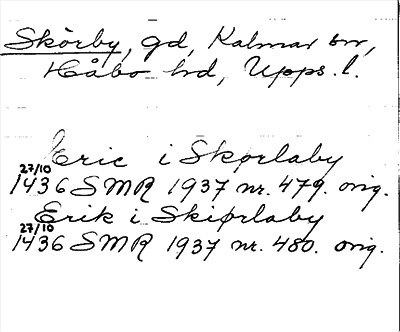 Skörby, gd, Kalmar sn,
Håbo hd, Upps. l.
Eric i Skorlaby
27/10
1436 SMR 1937 nr. 479. orig.
Erik i Skiørlaby
27/10
1436 SMR 1937 nr. 480. orig.